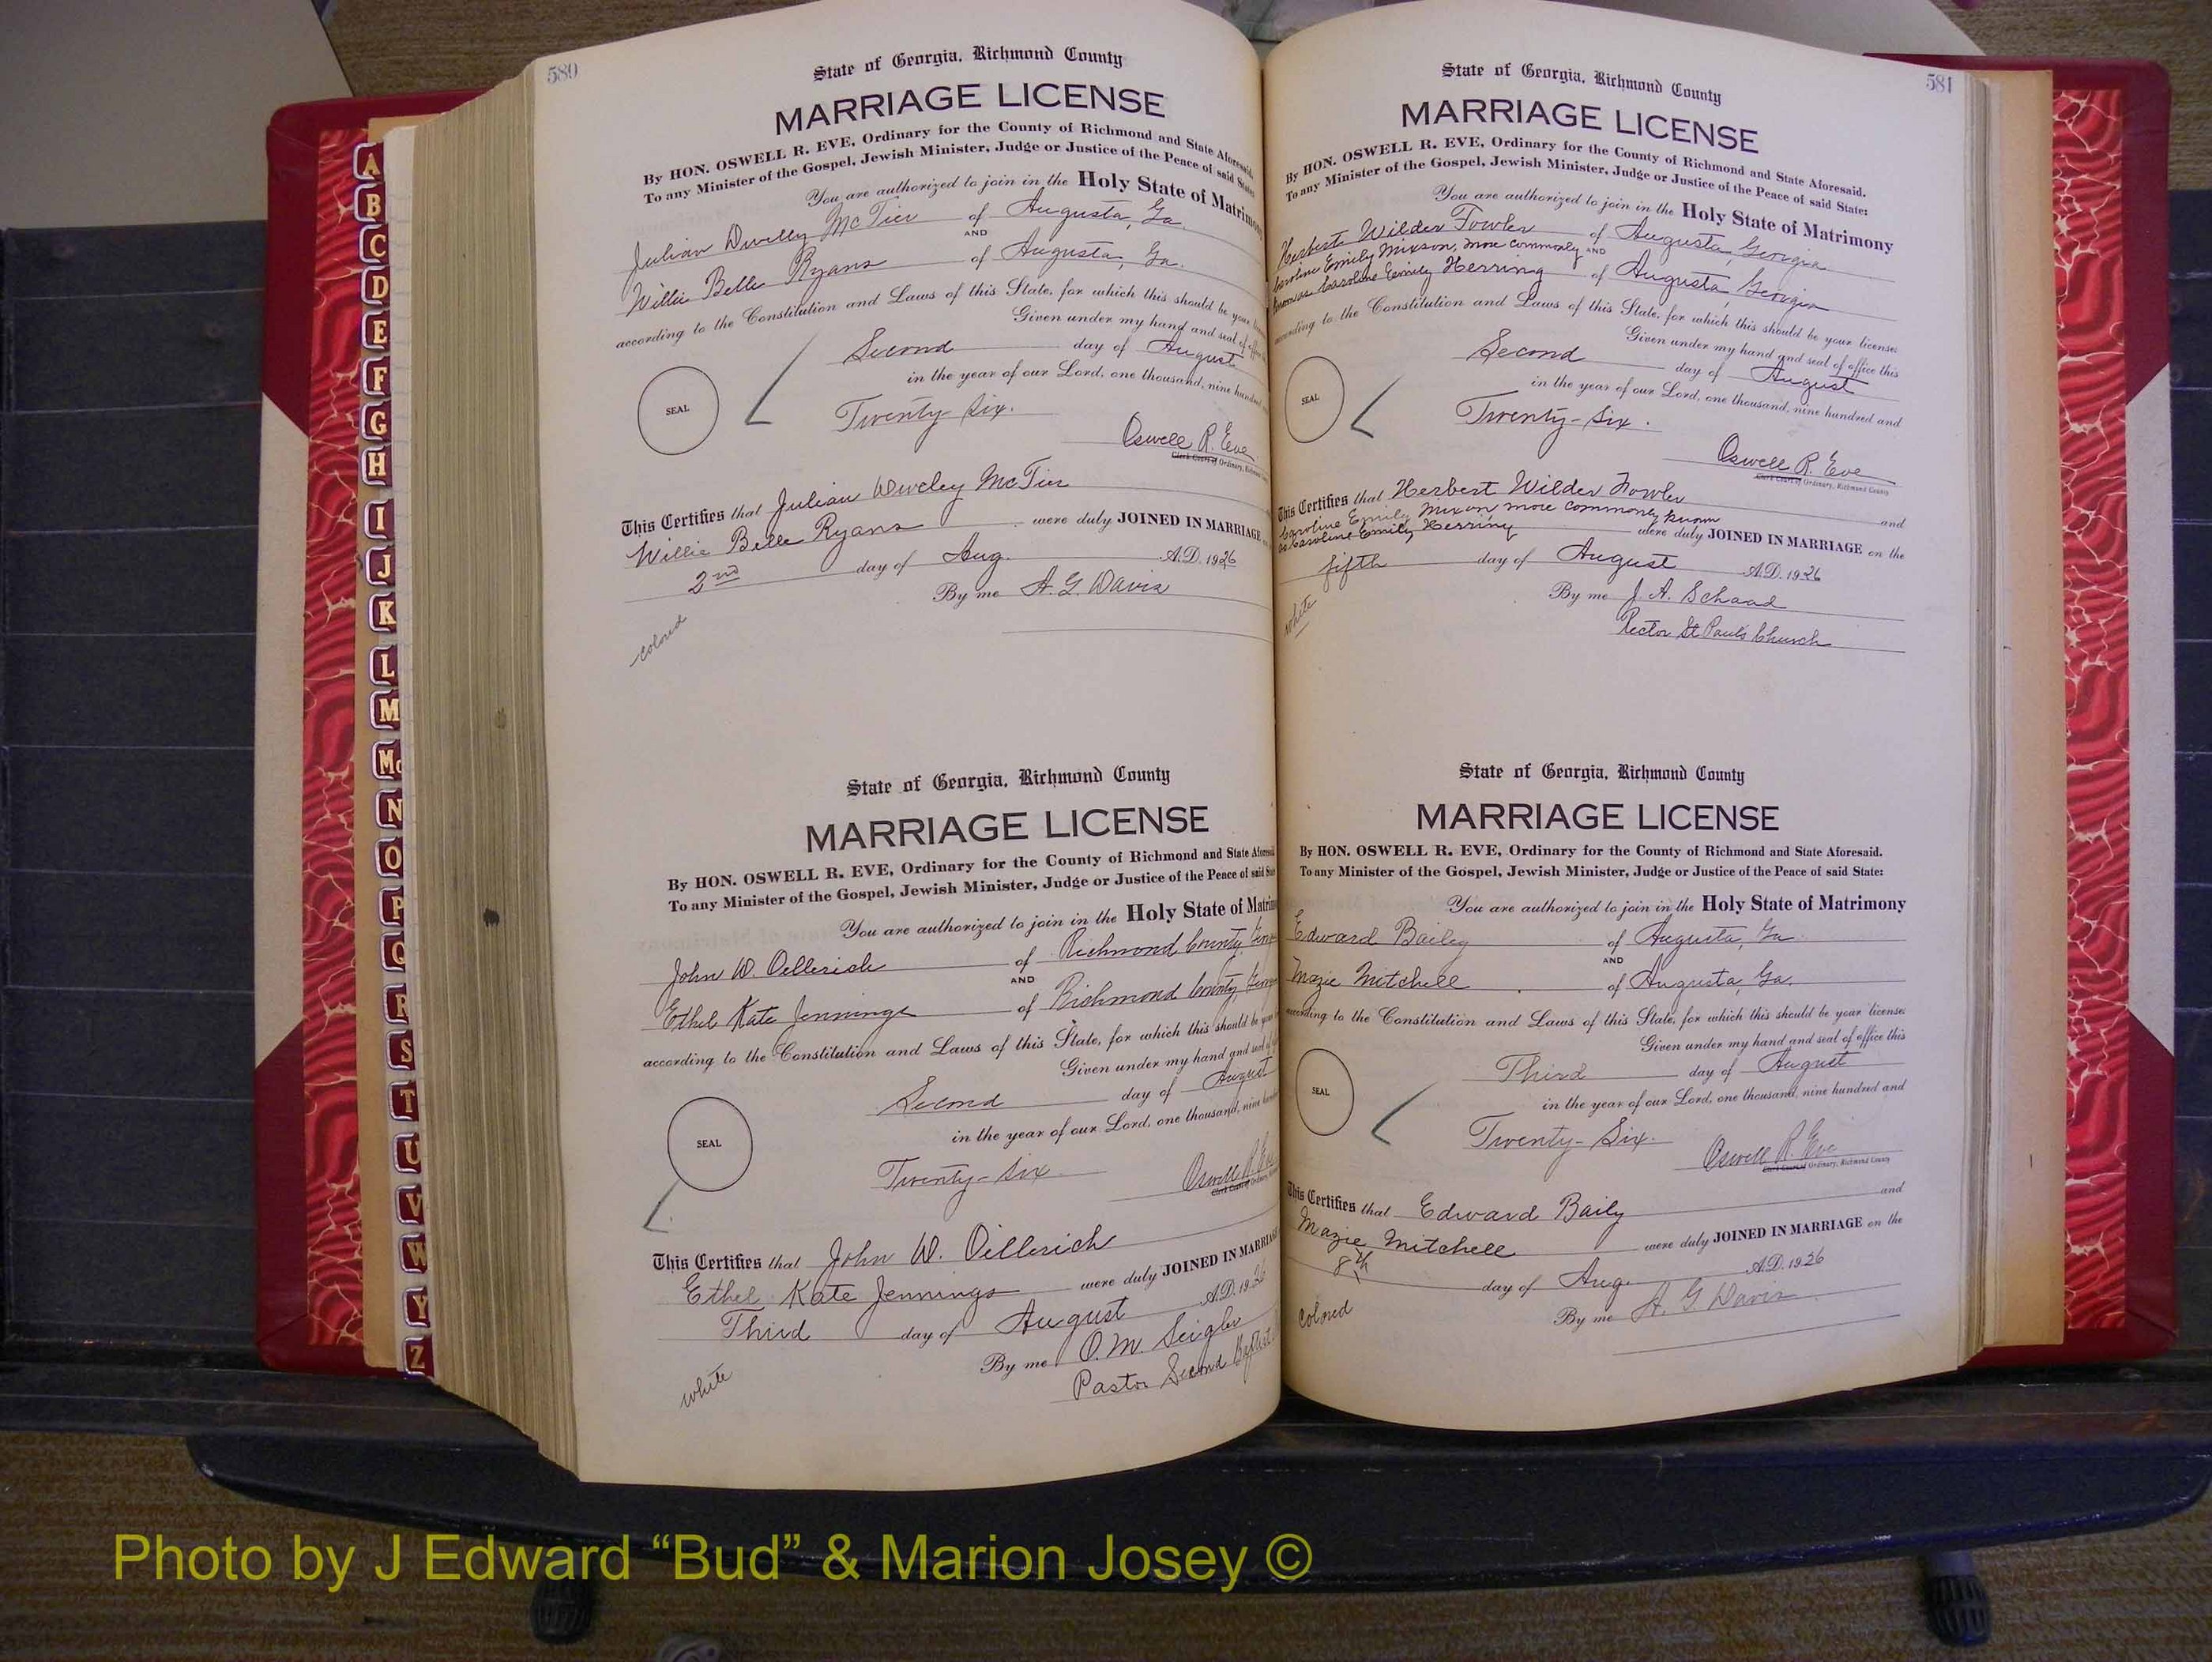 A
B
C
D
E
F
G
H
I
J
K
L
M
Mc
N
O
P
Q
R
S
T
U
V
W
Y
Z
580
State of Georgia, Richmond County
MARRIAGE LICENSE
By HON. OSWELL R. EVE, Ordinary for the County of Richmond and State Aforesaid.
To any Minister of the Gospel, Jewish Minister, Judge or Justice of the Peace of said State:
You are authorized to join in the Holy State of Matrimony
Julian McTier of Augusta, Ga.
AND
Willie Belle Ryans of Augusta, Ga.
according to the Constitution and Laws of this State, for which this should be your
Given under my hand and seal of
Second day of August
in the year of our Lord, one thousand, nine hundred
SEAL
Twenty-Six.
Oswell R. Eve
Clerk Court of Ordinary,
This Certifies that Julian McTier
Willie Belle Ryans were duly JOINED IN MARRIAGE
2nd day of Aug. A.D. 1926
By me A. G. Davis
colored
State of Georgia, Richmond County
MARRIAGE LICENSE
By HON. OSWELL R. EVE, Ordinary for the County of Richmond and State
To any Minister of the Gospel, Jewish Minister, Judge or Justice of the Peace of said
You are authorized to join in the Holy State of
John W. Oellerich of Richmond County,
AND
Ethel Kate Jennings of Richmond County,
according to the Constitution and Laws of this State, for which this should be
Given under my hand and seal
Second day of August
in the year of our Lord, one thousand, nine
SEAL
Twenty-Six
Oswell R. Eve
Clerk Court of
This Certifies that John W. Oellerich
Ethel Kate Jennings were duly JOINED IN
Third day of August A.D. 1926
By me O. M. Seigler
Pastor Second Baptist
white
581
State of Georgia, Richmond County
MARRIAGE LICENSE
By HON. OSWELL R. EVE, Ordinary for the County of Richmond and State Aforesaid.
To any Minister of the Gospel, Jewish Minister, Judge or Justice of the Peace of said State:
You are authorized to join in the Holy State of Matrimony
Herbert Wilder Fowler of Augusta, Georgia
Caroline Emily Mixson, more commonly AND
known as Caroline Emily Herring of Augusta, Georgia
according to the Constitution and Laws of this State, for which this should be your license:
Given under my hand and seal of office this
Second day of August
in the year of our Lord, one thousand, nine hundred and
SEAL
Twenty-Six.
Oswell R. Eve
Clerk Court of Ordinary, Richmond County
This Certifies that Herbert Wilder Fowler
Caroline Emily Mixon more commonly known and
as Caroline Emily Herring were duly JOINED IN MARRIAGE on the
fifth day of August A.D. 1926
By me J. A. Schaad
Rector St Paul's Church
white
State of Georgia, Richmond County
MARRIAGE LICENSE
By HON. OSWELL R. EVE, Ordinary for the County of Richmond and State Aforesaid.
To any Minister of the Gospel, Jewish Minister, Judge or Justice of the Peace of said State:
You are authorized to join in the Holy State of Matrimony
Edward Baily of Augusta, Ga.
AND
Mazie Mitchell of Augusta, Ga.
according to the Constitution and Laws of this State, for which this should be your license:
Given under my hand and seal of office this
Third day of August
in the year of our Lord, one thousand, nine hundred and
SEAL
Twenty-Six.
Oswell R. Eve
Clerk Court of Ordinary, Richmond County
This Certifies that Edward Baily and
Mazie Mitchell were duly JOINED IN MARRIAGE on the
8th day of Aug. A.D. 1926
By me A. G. Davis
Colored
Photo by J Edward “Bud” & Marion Josey ©